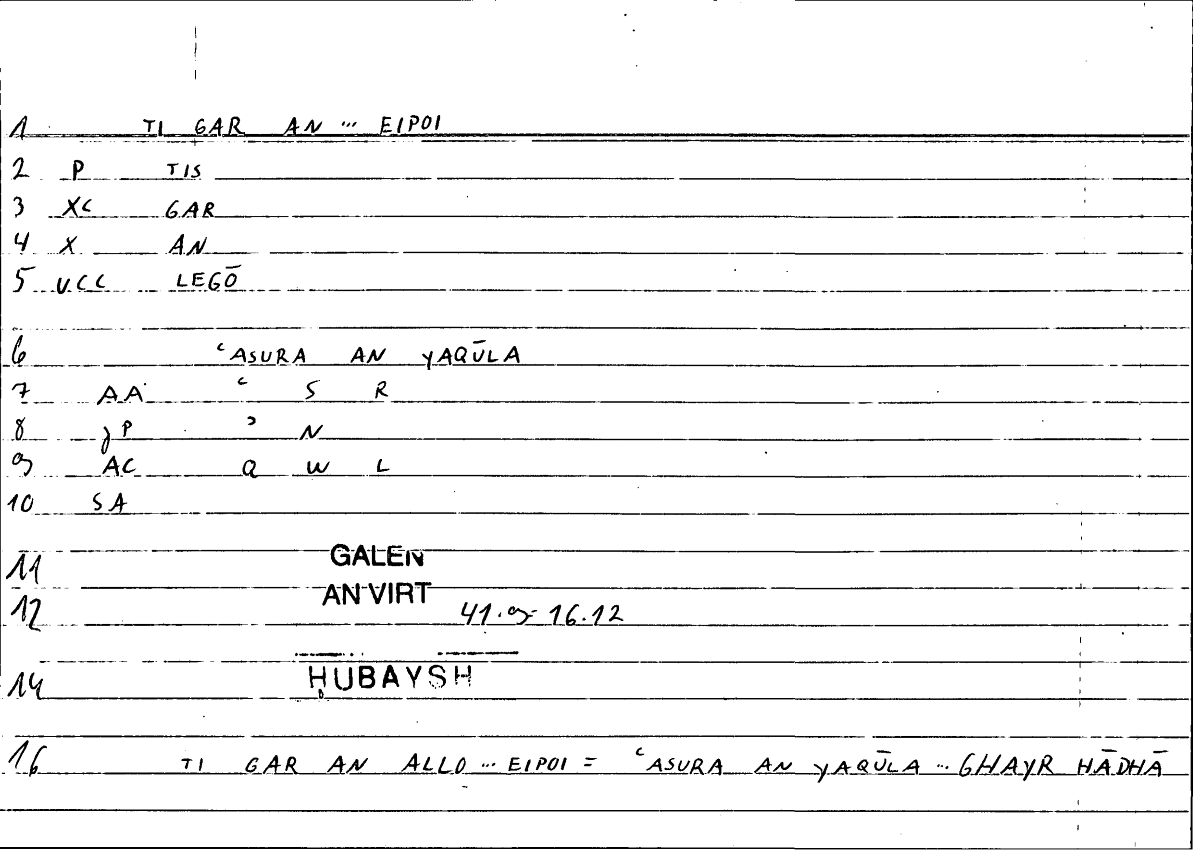 1 TI GAR AN ... EIPOI
2 P TIS
3 XC GAR
4 X AN
5 VCC LEGŌ
6 ʿASURA AN YAQŪLA
7 AA ʿ S R
8 JP ʾ N
9 AC Q W L
10 SA
11 GALEN
12 AN VIRT 41.9-16.12
14 ḤUBAYSH
16 TI GAR AN ALLO ... EIPOI = ʿASURA AN YAQŪLA ... GHAYR HĀDHĀ